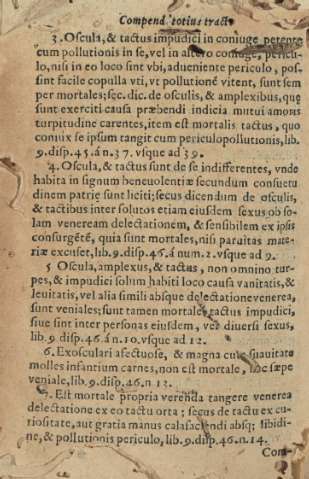 Compend. totius tract.
3. Oscula, & tactus impudici in coniuge petente
cum pollutionis in se, vel in altero coniuge, pericu-
lo, nisi in eo loco sint vbi, adueniente periculo, pos-
sint facile copulla vti, vt pollutionē vitent, sunt sem
per mortales; sec. dic. de osculis, & amplexibus, quę
sunt exerciti causa præbendi indicia mutui amoris
turpitudine carentes, item est mortalis tactus, quo
coniux se ipsum tangit cum periculo pollutionis, lib.
9. disp. 45. á n. 37. vsque ad 39.
4. Oscula, & tactus sunt de se indifferentes, vnde
habita in signum beneuolentiæ secundum consuetu
dinem patriæ sunt liciti; secus dicendum de osculis,
& tactibus inter solutos etiam eiusdem sexus ob so-
lam veneream delectationem, & sensibilem ex ipsis
consurgētē, quia sunt mortales, nisi paruitas mate-
riæ excuset, lib. 9. disp. 46. á num. 2. vsque ad 9.
5 Oscula, amplexus, & tactus, non omnino tur-
pes, & impudici solum habiti loco causa vanitatis, &
leuitatis, vel alia simili absque delectatione venerea,
sunt veniales; sunt tamen mortales tactus impudici,
siue sint inter personas eiusdem, vel diuersi sexus,
lib. 9 disp. 46. á n. 10. vsque ad 12.
6. Exosculari afectuose, & magna cum suauitate
molles infantium carnes, non est mortale, hoc sæpe
veniale, lib. 9. disp. 46. n 13.
7. Est mortale propria verenda tangere venerea
delectatione ex eo tactu orta; secus de tactu ex cu-
riositate, aut gratia manus calafaciendi absq; libidi-
ne, & pollutionis periculo, lib. 9. disp. 46. n. 14.
Com-